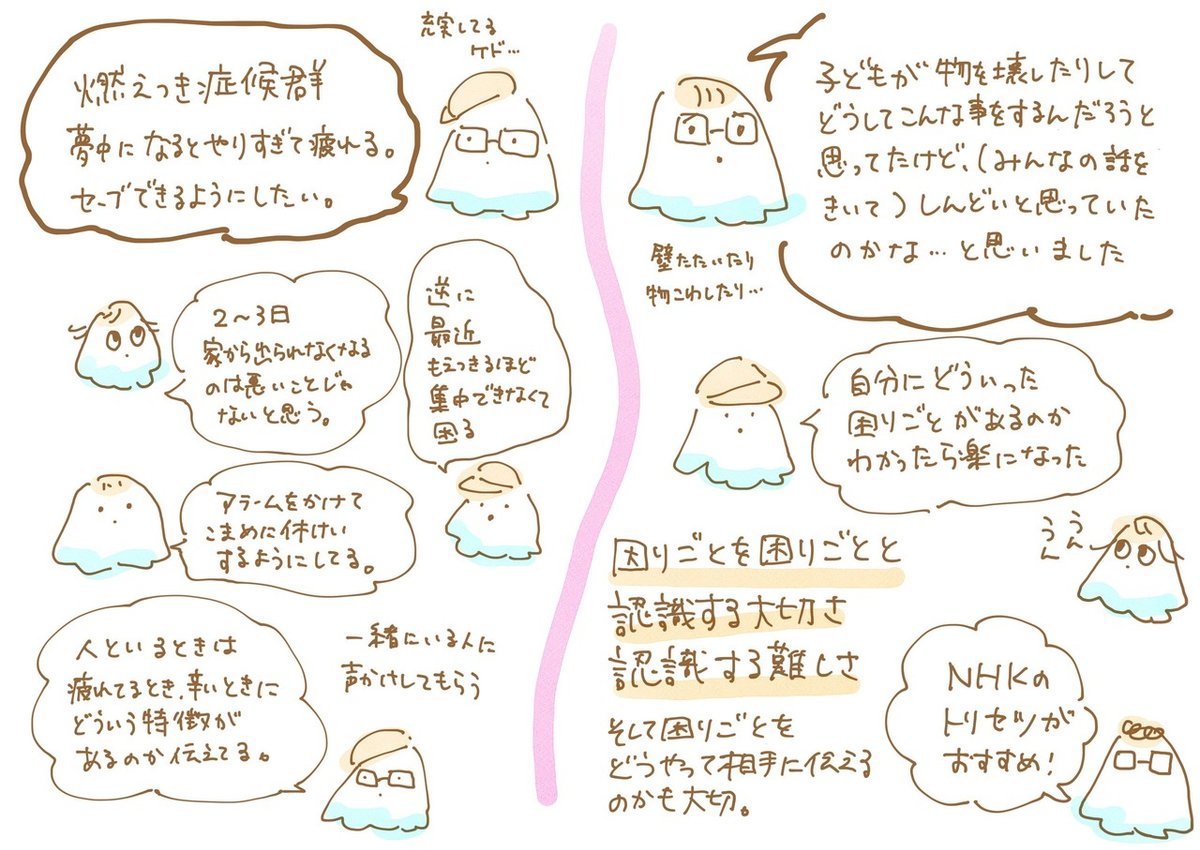 充実してる
ケド…
燃えつき症候群
夢中になるとやりすぎて疲れる。
セーブできるようにしたい。
2〜3日
家から出られなくなる
のは悪いことじゃ
ないと思う。
逆に
最近
もえつきるほど
集中できなくて
困る
アラームをかけて
こまめに休けい
するようにしてる。
人といるときは
疲れてるとき、辛いときに
どういう特徴が
あるのか伝えてる。
一緒にいる人に
声かけしてもらう
子どもが物を壊したりして
どうしてこんな事をするんだろうと
思ってたけど、(みんなの話を
きいて)しんどいと思っていた
のかな…と思いました
壁たたいたり
物こわしたり…
自分にどういった
困りごとがあるのか
わかったら楽になった
うん
うん
困りごとを困りごとと
認識する大切さ
認識する難しさ
そして困りごとを
どうやって相手に伝える
のかも大切。
NHKの
トリセツが
おすすめ!